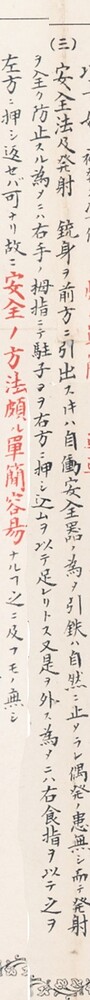 (三) 安全法及発射 銃身ヲ前方ニ引出ストキハ自働安全器ノ為メ引鉄ハ自然ニ止リテ偶発ノ患無シ而テ発射
ヲ全ク防止スル為メニハ右手ノ拇指ニテ駐子マヲ右方ニ押シ込ムヲ以テ足レリトス又是ヲ外ス為メニハ右食指ヲ以テ之ヲ
左方ニ押シ返セバ可ナリ故ニ安全ノ方法頗ル單簡容易ナルヿ之ニ及フモノ無シ